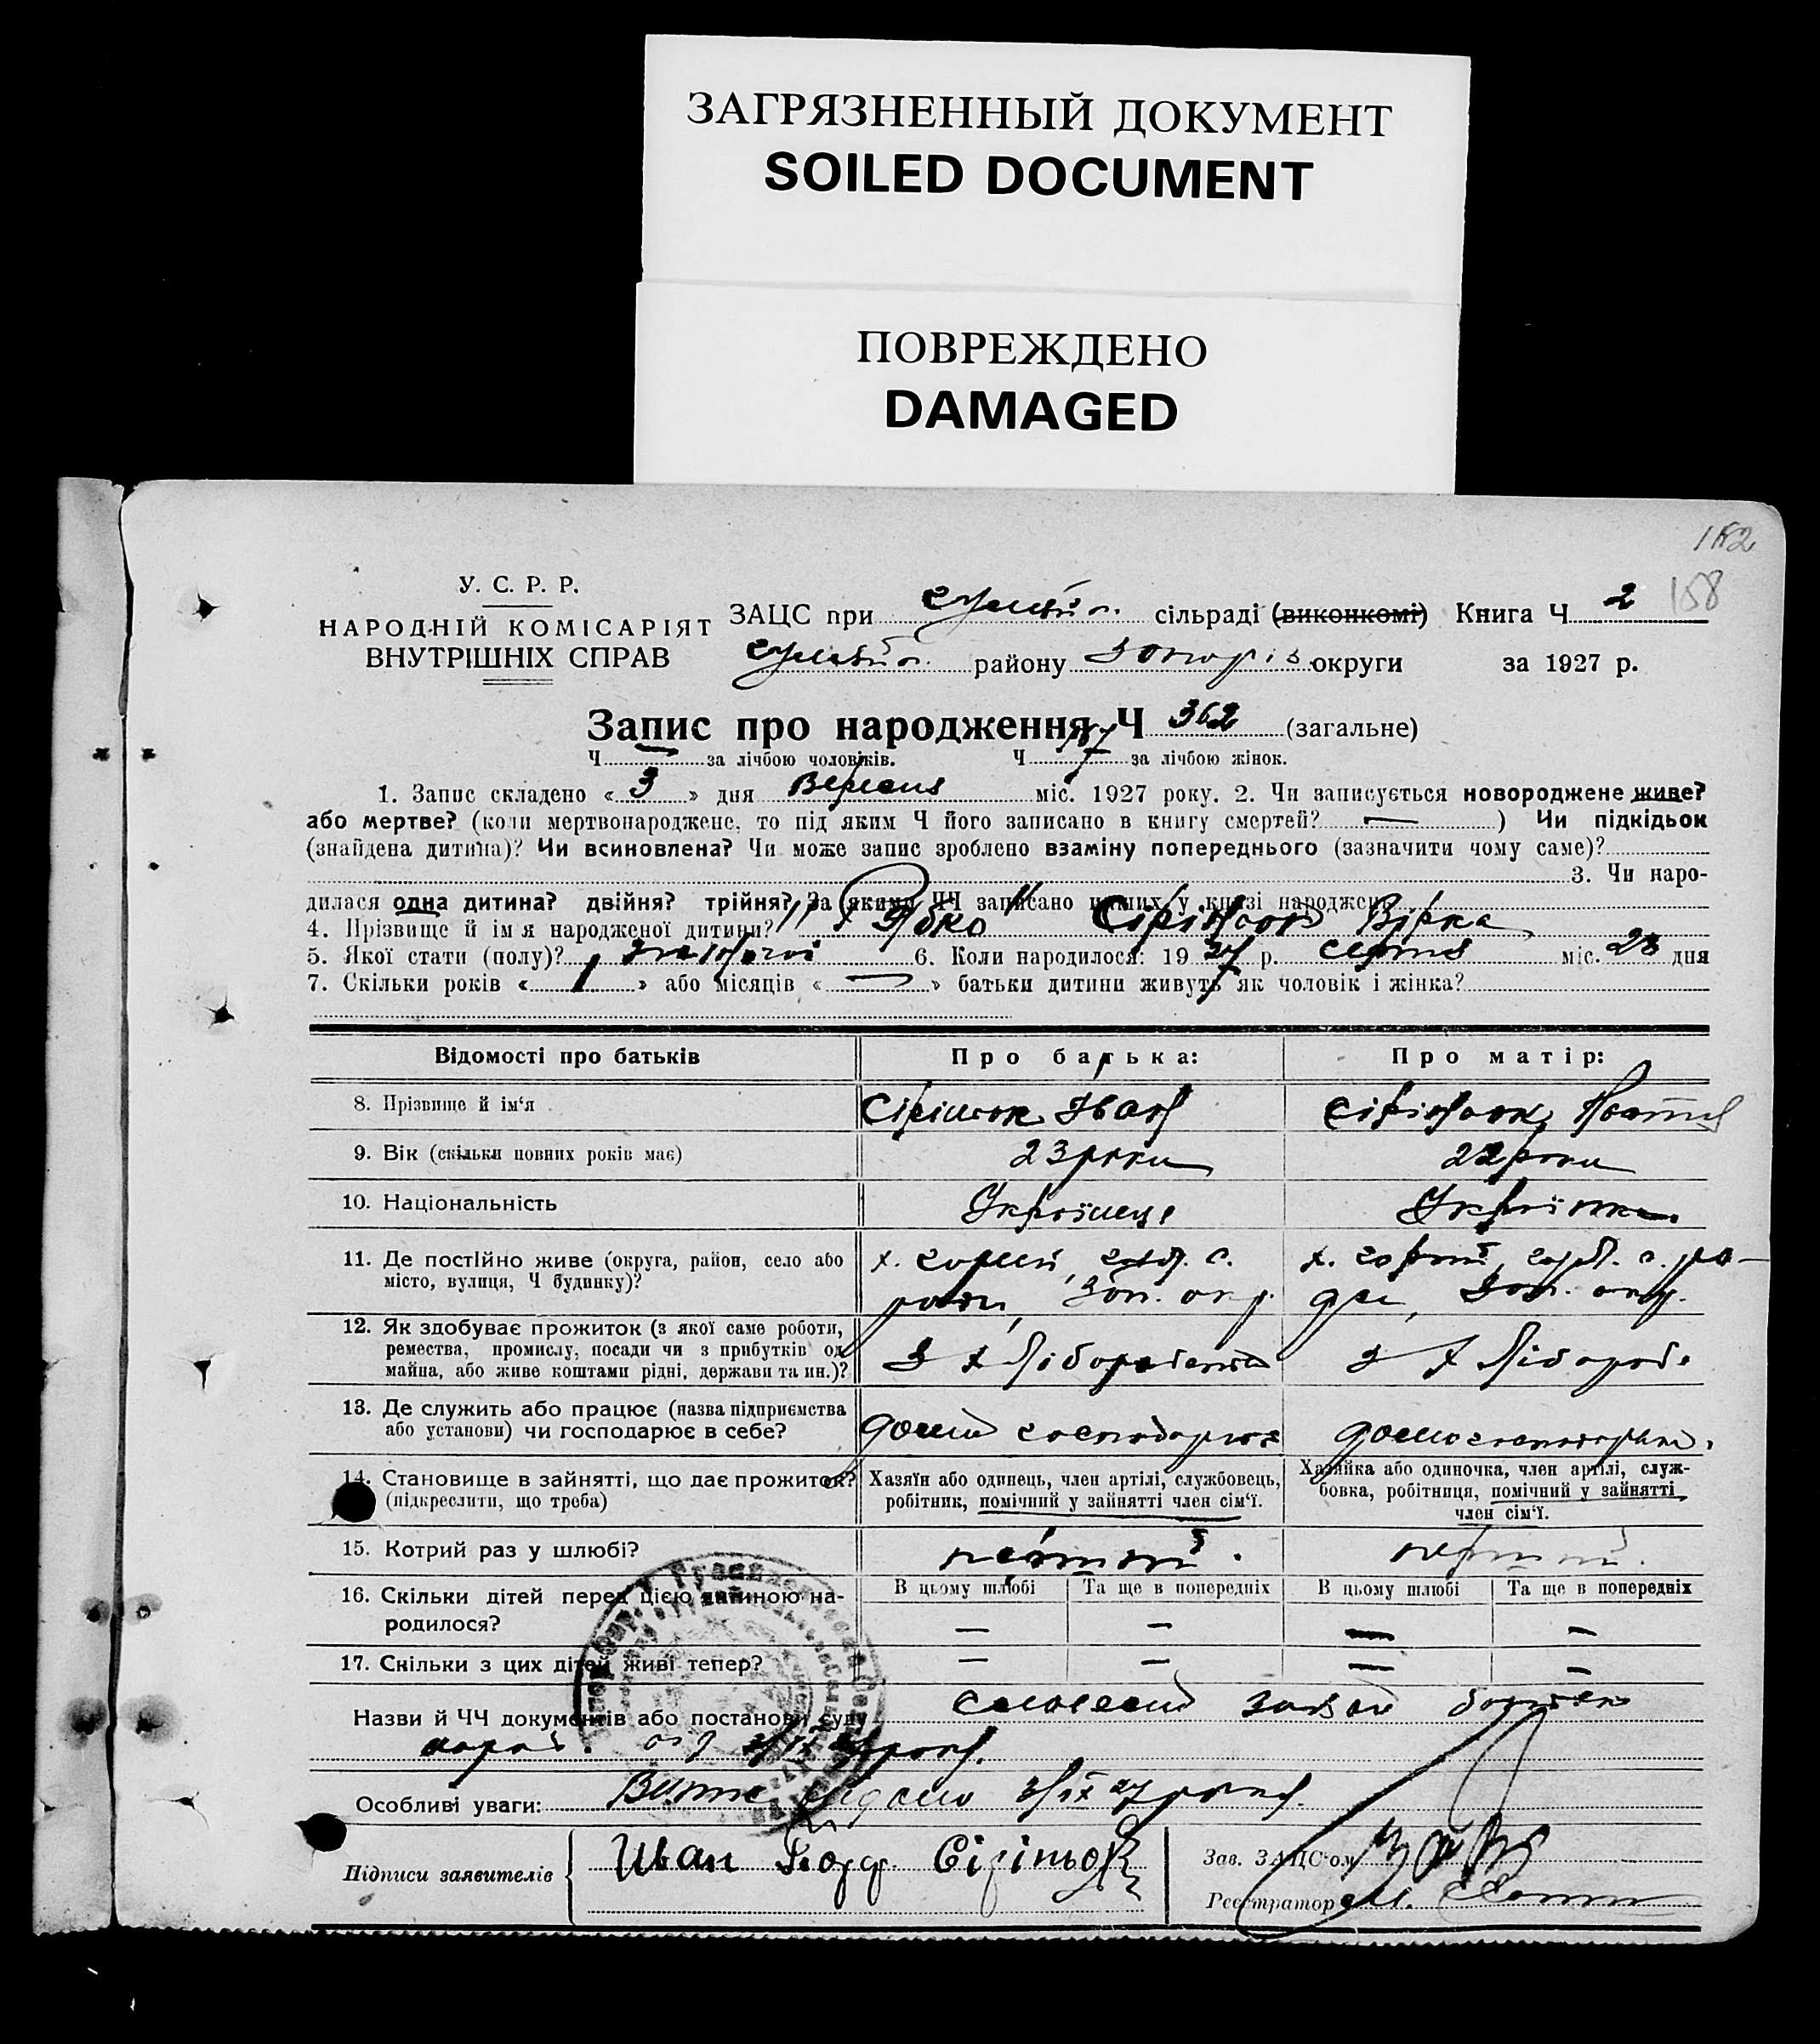 ЗАГРЯЗНЕННЫЙ ДОКУМЕНТ
SOILED DOCUMENT
ПОВРЕЖДЕНО
DAMAGED
182
158
У. С. Р. Р.
НАРОДНІЙ КОМІСАРІЯТ
ВНУТРІШНІХ СПРАВ
ЗАЦС при сільраді (виконкомі) Книга Ч 2
району округи за 1927 р.
Запис про народження Ч 362 (загальне)
Ч — за лічбою чоловіків. Ч за лічбою жінок.
1. Запис складено « 3 » дня Вересня міс. 1927 року. 2. Чи записується новороджене живе?
або мертве? (коли мертвонароджене, то під яким Ч його записано в книгу смертей? — ) Чи підкідьок
(знайдена дитина)? Чи всиновлена? Чи може запис зроблено взаміну попереднього (зазначити чому саме)?
3. Чи наро-
дилася одна дитина? двійня? трійня? За якими ЧЧ записано інших у книзі народжень
4. Прізвище й ім'я народженої дитини? Сіріньок Вірка
5. Якої стати (полу)? жіночої 6. Коли народилося: 19 27 р. серпня міс. 28 дня
7. Скільки років « 1 » або місяців « — » батьки дитини живуть як чоловік і жінка?
Відомості про батьків
Про батька:
Про матір:
8. Прізвище й ім'я
Сіріньок Іван
Сіріньок
9. Вік (скільки повних років має)
23 роки
22 роки
10. Національність
Українець
Українка
11. Де постійно живе (округа, район, село або
місто, вулиця, Ч будинку)?
х. с.
ради, Зап. окр.
х. с. ра-
ди, Зап. окр.
12. Як здобуває прожиток (з якої саме роботи,
ремества, промислу, посади чи з прибутків од
майна, або живе коштами рідні, держави та ин.)?
З хліборобства
З хлібороб.
13. Де служить або працює (назва підприємства
або установи) чи господарює в себе?
14. Становище в зайнятті, що дає прожиток?
(підкреслити, що треба)
Хазяїн або одинець, член артілі, службовець,
робітник, помічний у зайнятті член сім'ї.
Хазяйка або одиночка, член артілі, служ-
бовка, робітниця, помічний у зайнятті
член сім'ї.
15. Котрий раз у шлюбі?
перший.
перший.
16. Скільки дітей перед цією дитиною на-
родилося?
В цьому шлюбі
Та ще в попередніх
В цьому шлюбі
Та ще в попередніх
— — — —
17. Скільки з цих дітей живі тепер?
— — — —
Назви й ЧЧ документів або постанови суду
Особливі уваги: Витяг видано 3/IX 27 року.
Підписи заявителів
Иван Сіріньок
Зав. ЗАЦС'ом
Реєстратор